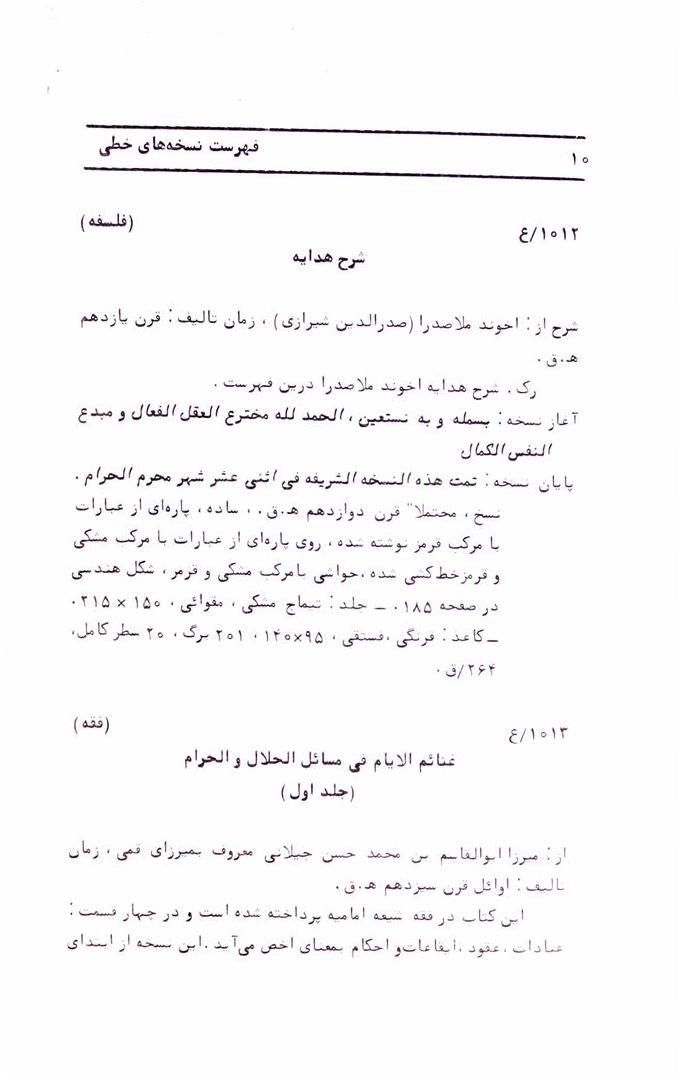 ۱۰ فهرست نسخه‌های خطی
۱۰۱۲/ع (فلسفه)
شرح هدایه
شرح از: اخوند ملاصدرا (صدرالدین شیرازی) ، زمان تالیف: قرن یازدهم
ه‍.ق.
رک. شرح هدایه اخوند ملاصدرا درین فهرست.
آغاز نسخه: بسمله و به نستعین ، الحمد لله مخترع العقل الفعال و مبدع
النفس الکمال
پایان نسخه: تمت هذه النسخه الشریفه فی اثنی عشر شهر محرم الحرام .
نسخ ، محتملا" قرن دوازدهم ه‍.ق. ، ساده ، پاره‌ای از عبارات
با مرکب قرمز نوشته شده ، روی پاره‌ای از عبارات با مرکب مشکی
و قرمز خط کشی شده ، حواشی بامرکب مشکی و قرمر ، شکل هندسی
در صفحه ۱۸۵. ــ جلد: تیماج مشکی ، مقوائی ، ۱۵۰ × ۲۱۵.
ــ کاغد: فرنگی ،فستقی ، ۹۵×۱۴۰ ، ۲۰۱ برگ ، ۲۰ سطر کامل،
۲۶۴/ق .
۱۰۱۳/ع (فقه)
غنائم الایام فی مسائل الحلال و الحرام
(جلد اول)
از: میرزا ابوالقاسم بن محمد حسن جیلانی معروف بمیرزای قمی ، زمان
تالیف: اوائل قرن سیزدهم ه‍.ق.
این کتاب در فقه شیعه امامیه پرداخته شده است و در چهار قسمت:
عبادات ،عقود ،ایقاعات‌و احکام بمعنای اخص می‌آید .این نسخه از ابتدای